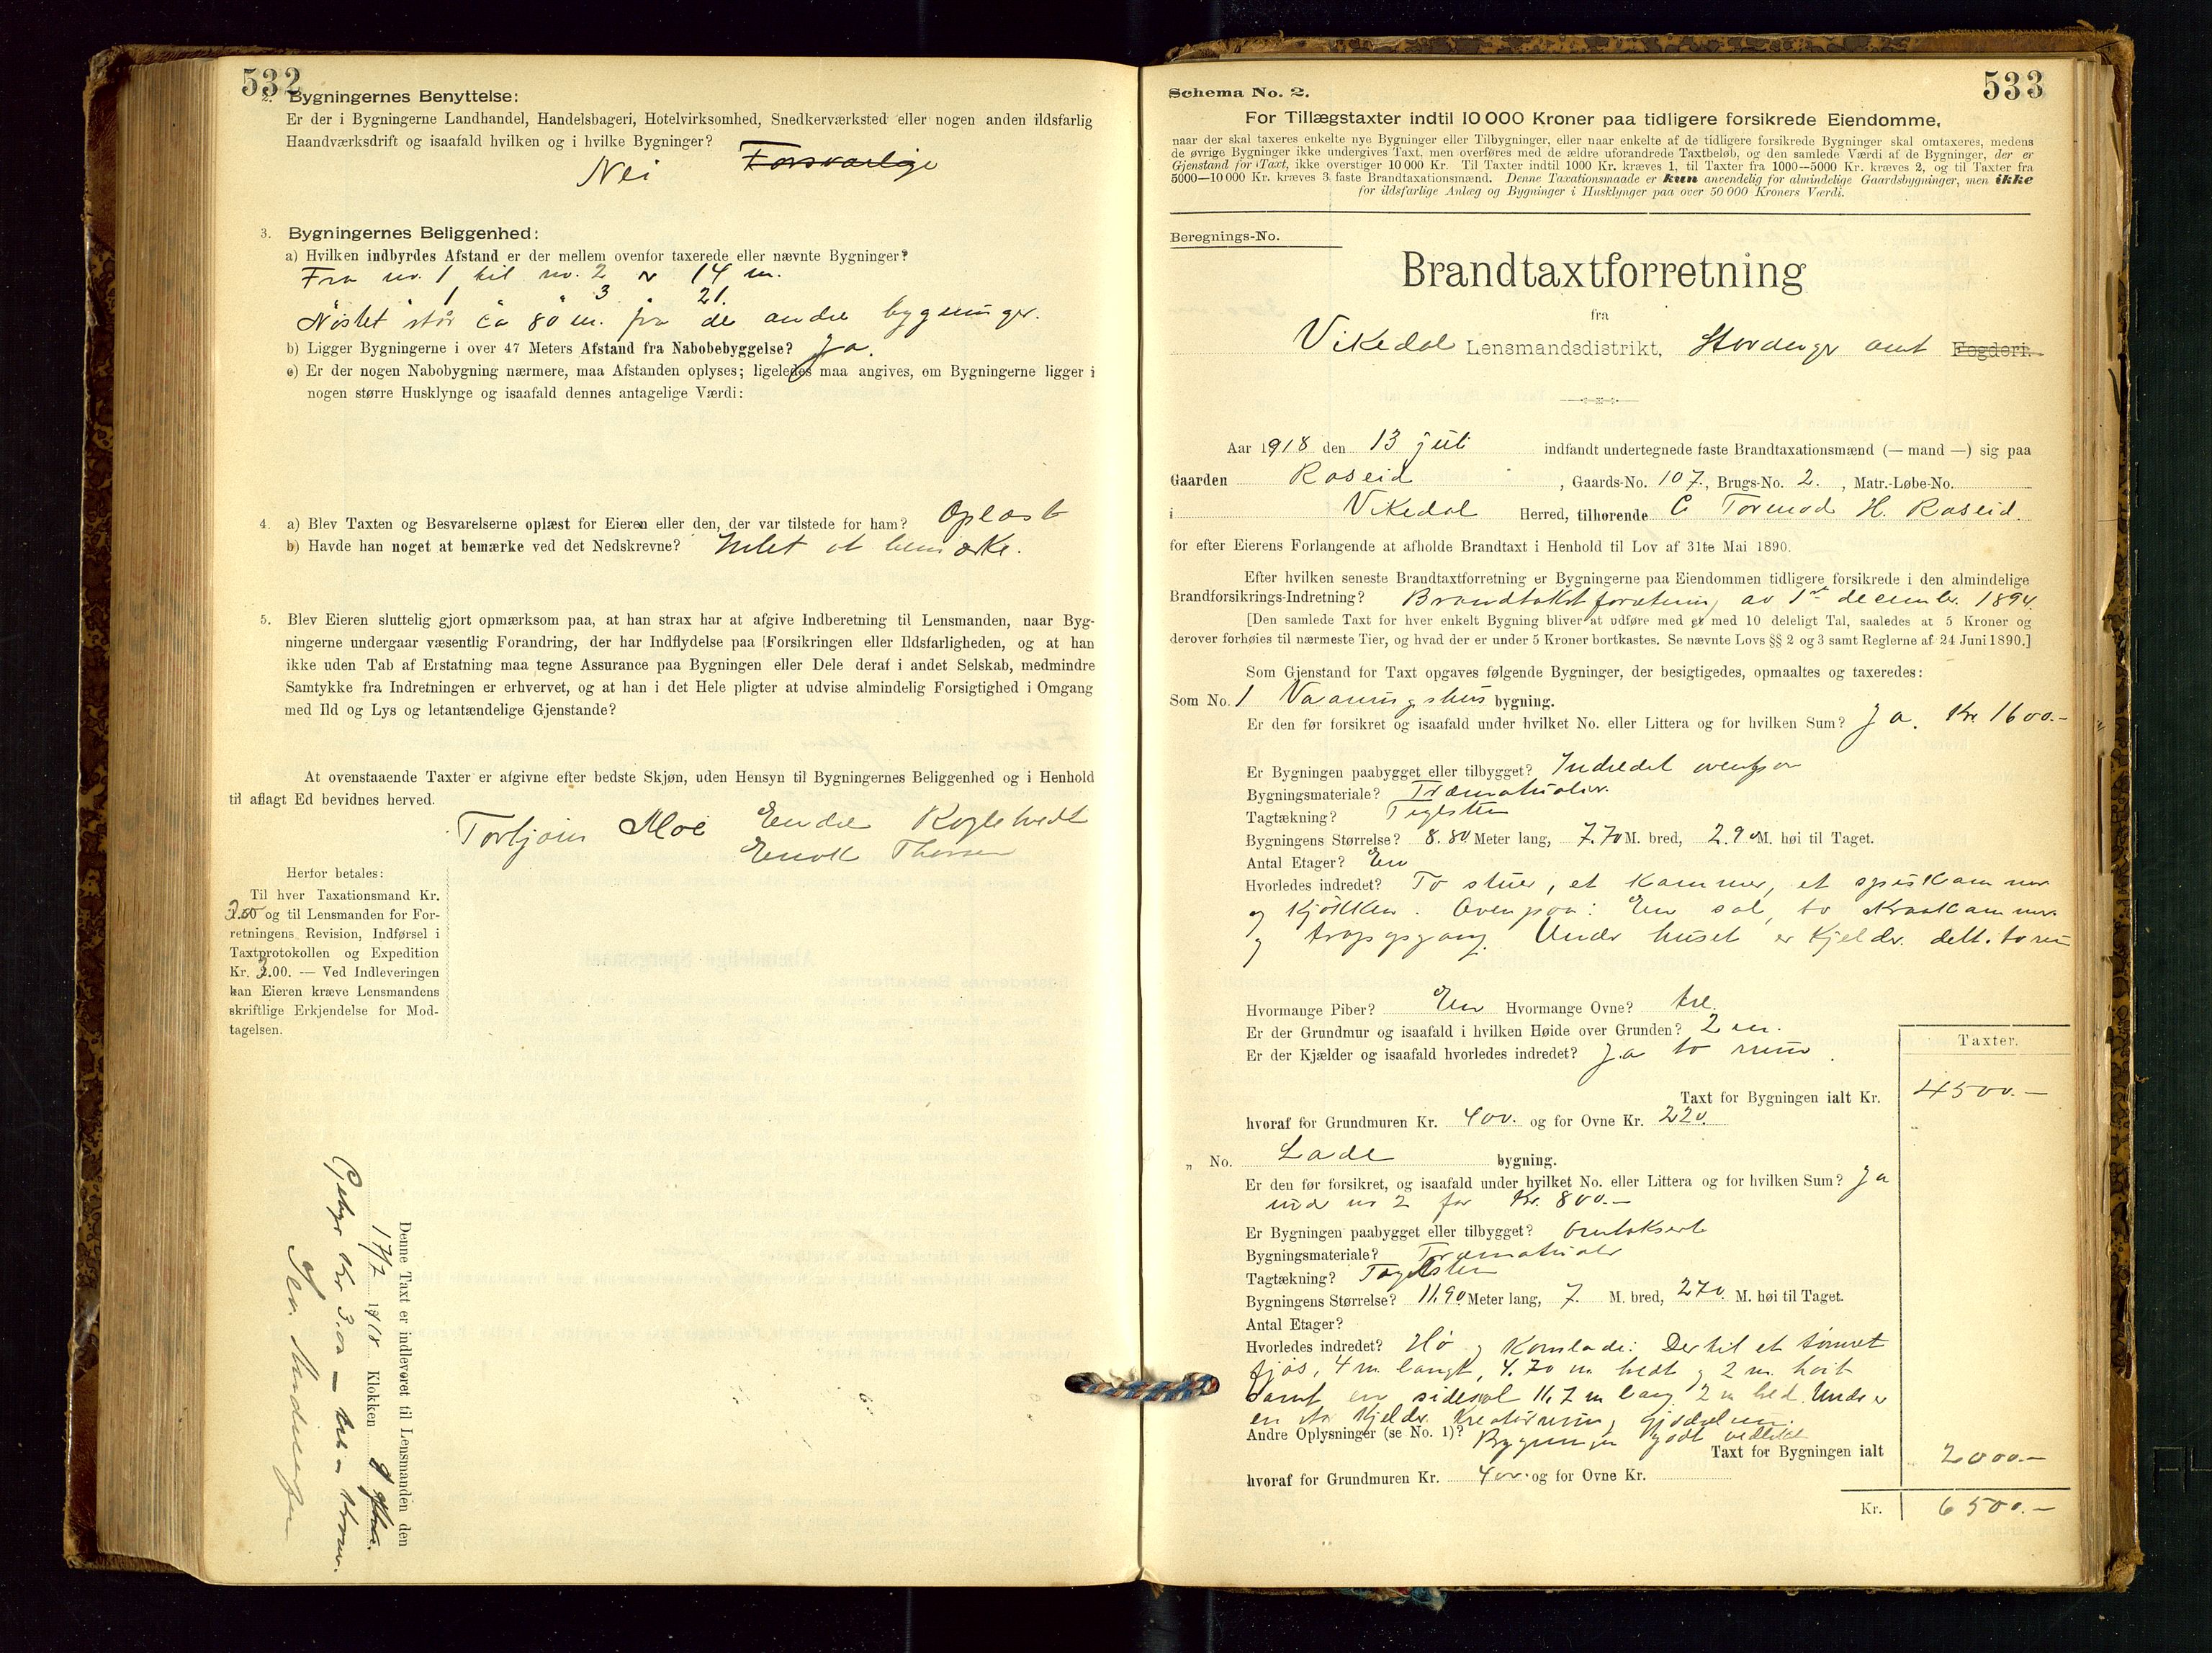 532
2. Bygningernes Benyttelse:
Er der i Bygningerne Landhandel, Handelsbageri, Hotelvirksomhed, Snedkerværksted eller nogen anden ildsfarlig
Haandværksdrift og isaafald hvilken og i hvilke Bygninger?
Nei Forsvarlige
3. Bygningernes Beliggenhed:
a) Hvilken indbyrdes Afstand er der mellem ovenfor taxerede eller nævnte Bygninger?
Fra no. 1 til no. 2 er 14 m.
" " 1 " " 3 " 21.
Nöstet står ca 80 m. fra de andre bygninger.
b) Ligger Bygningerne i over 47 Meters Afstand fra Nabobebyggelse? Ja.
c) Er der nogen Nabobygning nærmere, maa Afstanden oplyses; ligeledes maa angives, om Bygningerne ligger i
nogen større Husklynge og isaafald dennes antagelige Værdi:
4. a) Blev Taxten og Besvarelserne oplæst for Eieren eller den, der var tilstede for ham? Oplæst
b) Havde han noget at bemærke ved det Nedskrevne? Intet at bemærke.
5. Blev Eieren sluttelig gjort opmærksom paa, at han strax har at afgive Indberetning til Lensmanden, naar Byg-
ningerne undergaar væsentlig Forandring, der har Indflydelse paa Forsikringen eller Ildsfarligheden, og at han
ikke uden Tab af Erstatning maa tegne Assurance paa Bygningen eller Dele deraf i andet Selskab, medmindre
Samtykke fra Indretningen er erhvervet, og at han i det Hele pligter at udvise almindelig Forsigtighed i Omgang
med Ild og Lys og letantændelige Gjenstande?
At ovenstaaende Taxter er afgivne efter bedste Skjøn, uden Hensyn til Bygningernes Beliggenhed og i Henhold
til aflagt Ed bevidnes herved.
Torbjørn Moe Endre
Enok Thorsen
Herfor betales:
Til hver Taxationsmand Kr.
3.00 og til Lensmanden for For-
retningens Revision, Indførsel i
Taxtprotokollen og Expedition
Kr. 3.00. — Ved Indleveringen
kan Eieren kræve Lensmandens
skriftlige Erkjendelse for Mod-
tagelsen.
Denne Taxt er indleveret til Lensmanden den
17/7 1918 Klokken 9
Gebyr Kr 3.00 — tre kroner.
533
Schema No. 2.
For Tillægstaxter indtil 10 000 Kroner paa tidligere forsikrede Eiendomme,
naar der skal taxeres enkelte nye Bygninger eller Tilbygninger, eller naar enkelte af de tidligere forsikrede Bygninger skal omtaxeres, medens
de øvrige Bygninger ikke undergives Taxt, men overføres med de ældre uforandrede Taxtbeløb, og den samlede Værdi af de Bygninger, der er
Gjenstand for Taxt, ikke overstiger 10 000 Kr. Til Taxter indtil 1000 Kr. kræves 1, til Taxter fra 1000—5000 Kr. kræves 2, og til Taxter fra
5000—10 000 Kr. kræves 3 faste Brandtaxationsmænd. Denne Taxationsmaade er kun anvendelig for almindelige Gaardsbygninger, men ikke
for ildsfarlige Anlæg og Bygninger i Husklynger paa over 50 000 Kroners Værdi.
Beregnings-No.
Brandtaxtforretning
fra
Vikedal Lensmandsdistrikt, Stavanger amt Fogderi.
Aar 1918 den 13 juli indfandt undertegnede faste Brandtaxationsmænd (— mand —) sig paa
Gaarden Raseid, Gaards-No. 107., Brugs-No. 2., Matr.-Løbe-No.
i Vikedal Herred, tilhørende Tormod H. Raseid.
for efter Eierens Forlangende at afholde Brandtaxt i Henhold til Lov af 31te Mai 1890.
Efter hvilken seneste Brandtaxtforretning er Bygningerne paa Eiendommen tidligere forsikrede i den almindelige
Brandforsikrings-Indretning? Brandtakstforretning av 1ste december 1894.
[Den samlede Taxt for hver enkelt Bygning bliver at udføre med et med 10 deleligt Tal, saaledes at 5 Kroner og
derover forhøies til nærmeste Tier, og hvad der er under 5 Kroner bortkastes. Se nævnte Lovs §§ 2 og 3 samt Reglerne af 24 Juni 1890.]
Som Gjenstand for Taxt opgaves følgende Bygninger, der besigtigedes, opmaaltes og taxeredes:
Som No. 1 Vaaningshus bygning.
Er den før forsikret og isaafald under hvilket No. eller Littera og for hvilken Sum? Ja. Kr 1600.-
Er Bygningen paabygget eller tilbygget? Indredet ovenpaa
Bygningsmateriale? Træmaterialer.
Tagtækning? Teglsten
Bygningens Størrelse? 8.80 Meter lang, 7.70 M. bred, 2.90 M. høi til Taget.
Antal Etager? En
Hvorledes indredet? To stuer, et kammer, et spiskammer
og kjökken. Ovenpaa: En sal, to kammer
og trapgang. Under huset er kjelder delt i to rum
Hvormange Piber? En Hvormange Ovne? tre.
Er der Grundmur og isaafald i hvilken Høide over Grunden? 2 m.
Er der Kjælder og isaafald hvorledes indredet? Ja to rum.
Taxter.
Taxt for Bygningen ialt Kr. 4500.—
hvoraf for Grundmuren Kr. 400. og for Ovne Kr. 220.
„ No. Lade bygning.
Er den før forsikret, og isaafald under hvilket No. eller Littera og for hvilken Sum? Ja
under no 2 for Kr. 800.—
Er Bygningen paabygget eller tilbygget? Omtaksert
Bygningsmateriale? Træmaterialer
Tagtækning? Taglsten
Bygningens Størrelse? 11.90 Meter lang, 7. M. bred, 270. M. høi til Taget.
Antal Etager?
Hvorledes indredet? Hö og Kornlade: Dertil et tömret
fjös, 4 m langt, 4.70 m bredt og 2 m. höit
samt en sidesval 11.7 m lang 2 m bred. Under er
en stor kjelder, kreaturrum og gjödselrum.
Andre Oplysninger (se No. 1)? Bygningen godt vedlikeholdt
Taxt for Bygningen ialt 2000.—
hvoraf for Grundmuren Kr. 400. og for Ovne Kr.
Kr. 6500.—